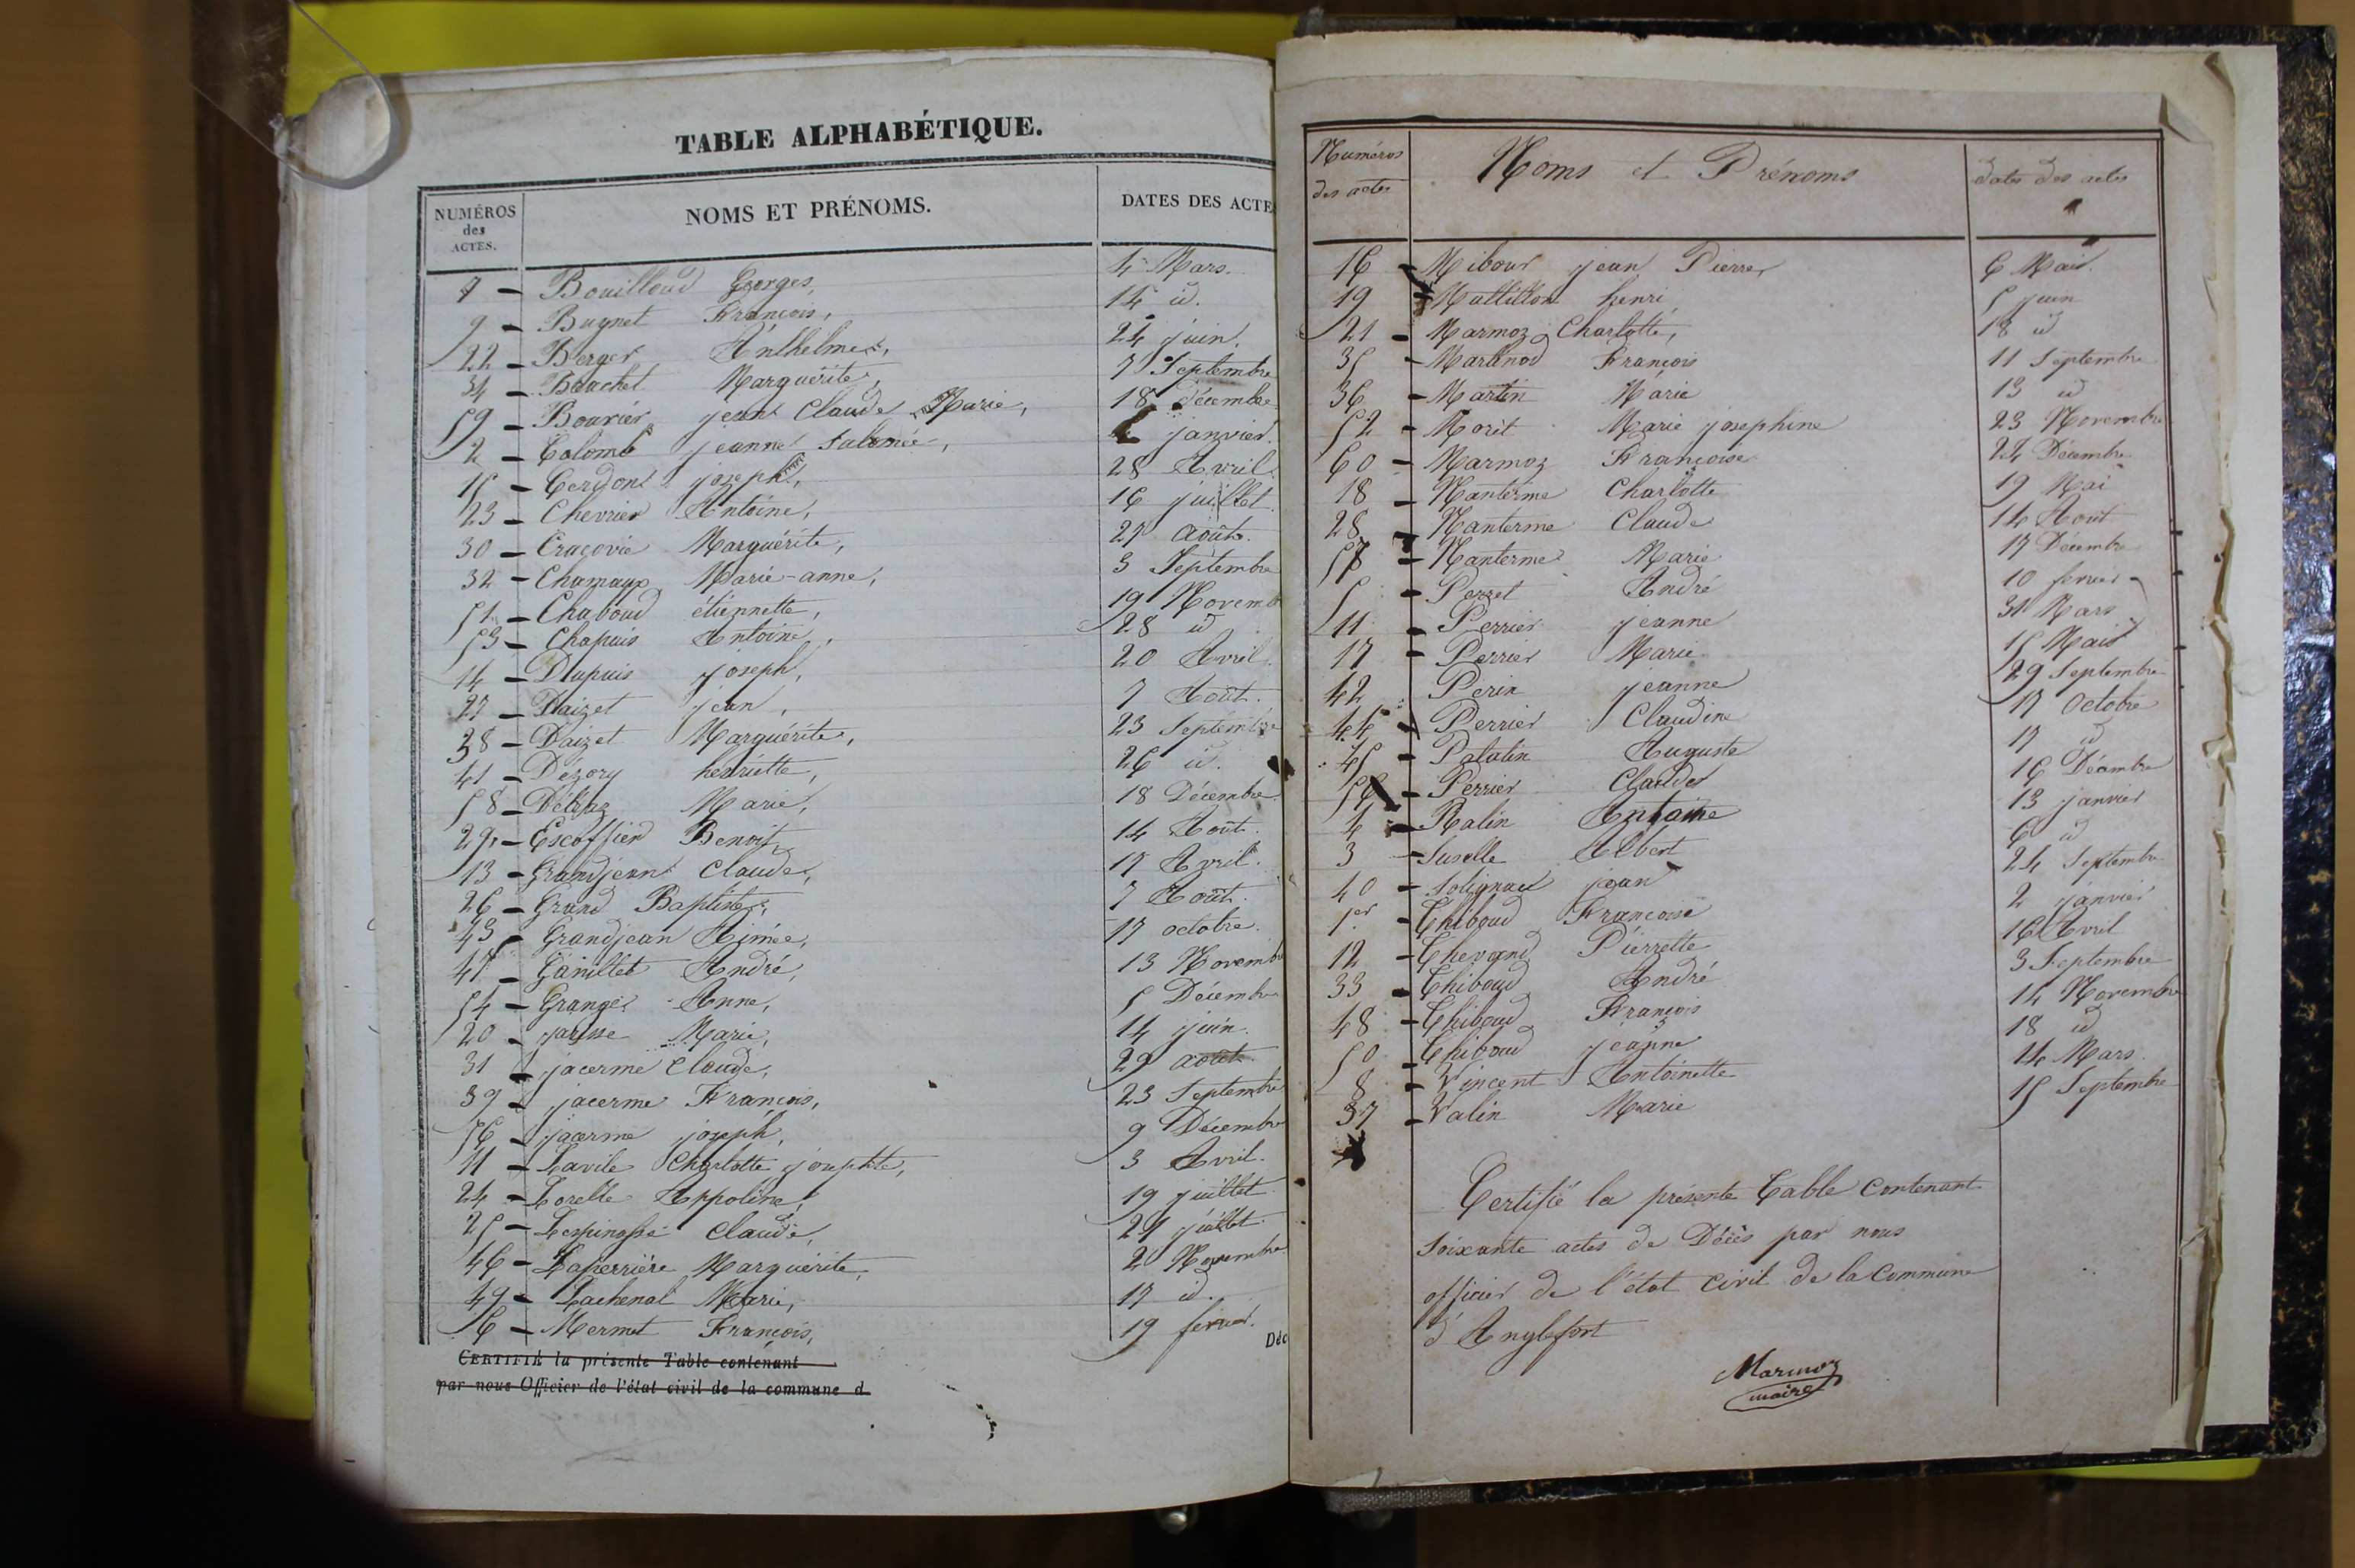 TABLE ALPHABÉTIQUE.
NUMÉROS des ACTES. NOMS ET PRÉNOMS. DATES DES ACTE
7 - Bouilloud Georges, 4 Mars.
9 - Bugnet François, 14 id.
22 - Berger Anthelme, 24 juin.
34 - Bauchet Marguérite, 7 Septembre
59 - Bouvier jean Claude Marie, 18 décembre
2 - Colomb jeanne Salomée, janvier.
15 - Cerdon joseph, 28 Avril.
23 - Chevrier Antoine, 16 juillet.
30 - Cracovie Marguérite, 27 août.
32 - Chamaux Marie-anne, 3 Septembre
51 - Chaboud étiennette, 19 Novemb
53 - Chapuis Antoine, 28 id
14 - Dupuis joseph, 20 Avril.
27 - Daizet jean, 7 Août.
38 - Daizet Marguérite, 23 Septembre
41 - Dézory henriette, 26 id.
58 - Marie, 18 Décembre.
29 - Escoffier Benoit, 14 Août.
13 - Grandjean Claude, 17 Avril.
26 - Grand Baptiste, 7 Août.
43 - Grandjean Aimée, 17 octobre.
47 - Ganillet André, 13 Novemb
54 - Granger Anne, 5 Décembre
20 - jarisse Marie, 14 juin.
31 - jacerme Claude, 29 août.
39 - jacerme François, 23 Septembre
56 - jacerme joseph, 9 Décembre
11 - Lavile Charlotte josephte, 3 Avril.
24 - Lorelle Appoline, 19 juillet.
25 - Lespinasse Claude, 21 juillet.
46 - Laperrière Marguérite, 2 Novembre
49 - Lachenal Marie, 17 id.
6 - Mermet François, 19 février.
Déc
CERTIFIÉ la présente Table contenant
par nous Officier de l'état civil de la commune d
Numéros des actes Noms et Prénoms dates des actes
16 - Mibour jean Pierre 6 Mai.
19 - Mattillon henri 5 juin
21 - Marmoz Charlotte, 18 id
35 - Martinod François 11 Septembre
36 - Martin Marie 13 id
52 - Morit Marie josephine 23 Novembre
60 - Marmoz Françoise 24 Décembre
18 - Nanterme Charlotte 19 Mai
28 - Nanterme Claude 14 Août
57 - Nanterme Marie 17 Décembre
5 - Perret André 10 février
11 - Perrier jeanne 31 Mars
17 - Perrier Marie 15 Mai
42 - Perin jeanne 29 Septembre
44 - Perrier Claudine 17 Octobre
45 - Palatin Auguste 17 id
- Perrier Claude 16 Décembre
4 - Ralin Antoine 13 janvier
3 - Suselle Albert 6 id
40 - Solignat jean 24 Septembre
1er - Thiboud Françoise 2 janvier
12 - Thevand Pierrette 16 Avril
33 - Thiboud André 3 Septembre
48 - Thiboud François 14 Novembre
50 - Thiboud jeanne 18 id
8 - Vincent Antoinette 14 Mars.
37 - Valin Marie 15 Septembre
Certifié la présente Table Contenant
soixante actes de Décès par nous
officier de l'état civil de la Commune
d'Anglefort
Marmoz
maire